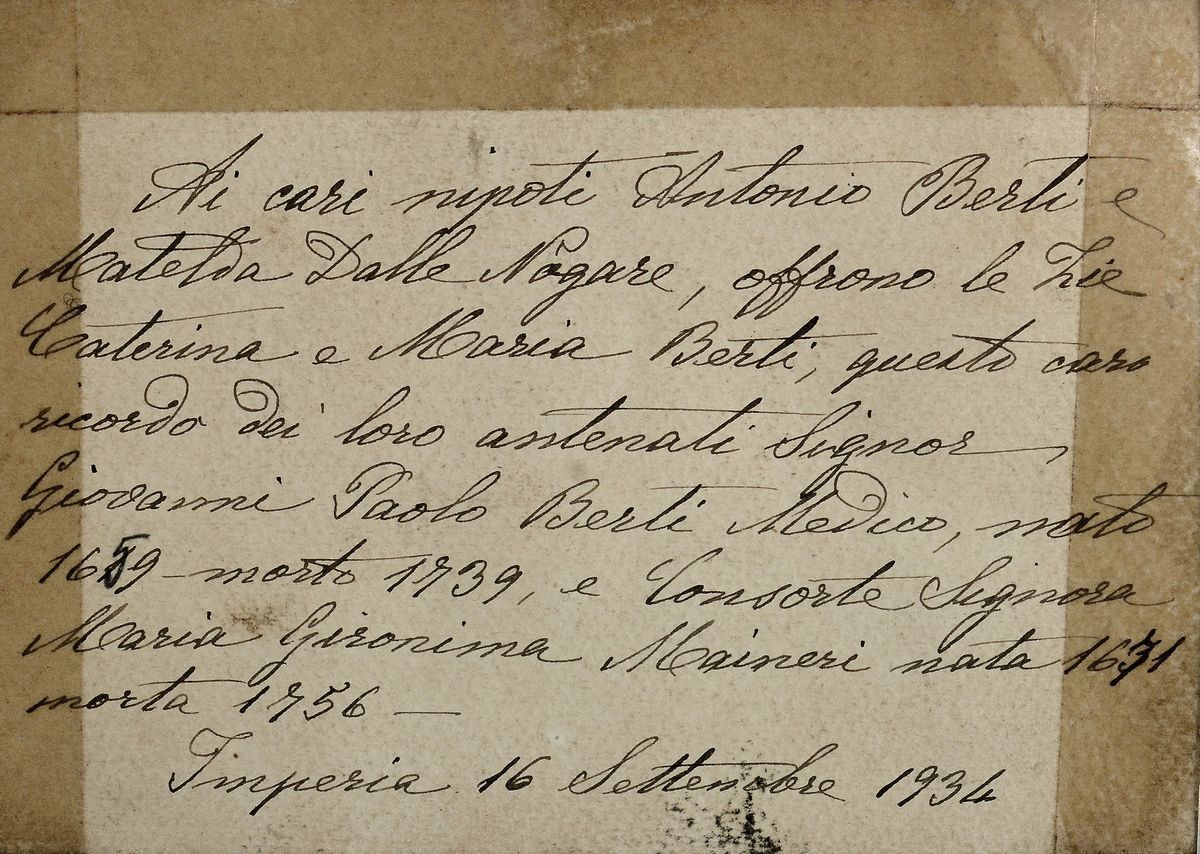 Ai cari nipoti Antonio Berti e
Matelda Dalle Nogare, offrono le Zie
Caterina e Maria Berti, questo caro
ricordo dei loro antenati Signor
Giovanni Paolo Berti Medico, nato
1659 - morto 1739, e Consorte Signora
Maria Gironima Maineri nata 1671
morta 1756 —
Imperia 16 Settembre 1934